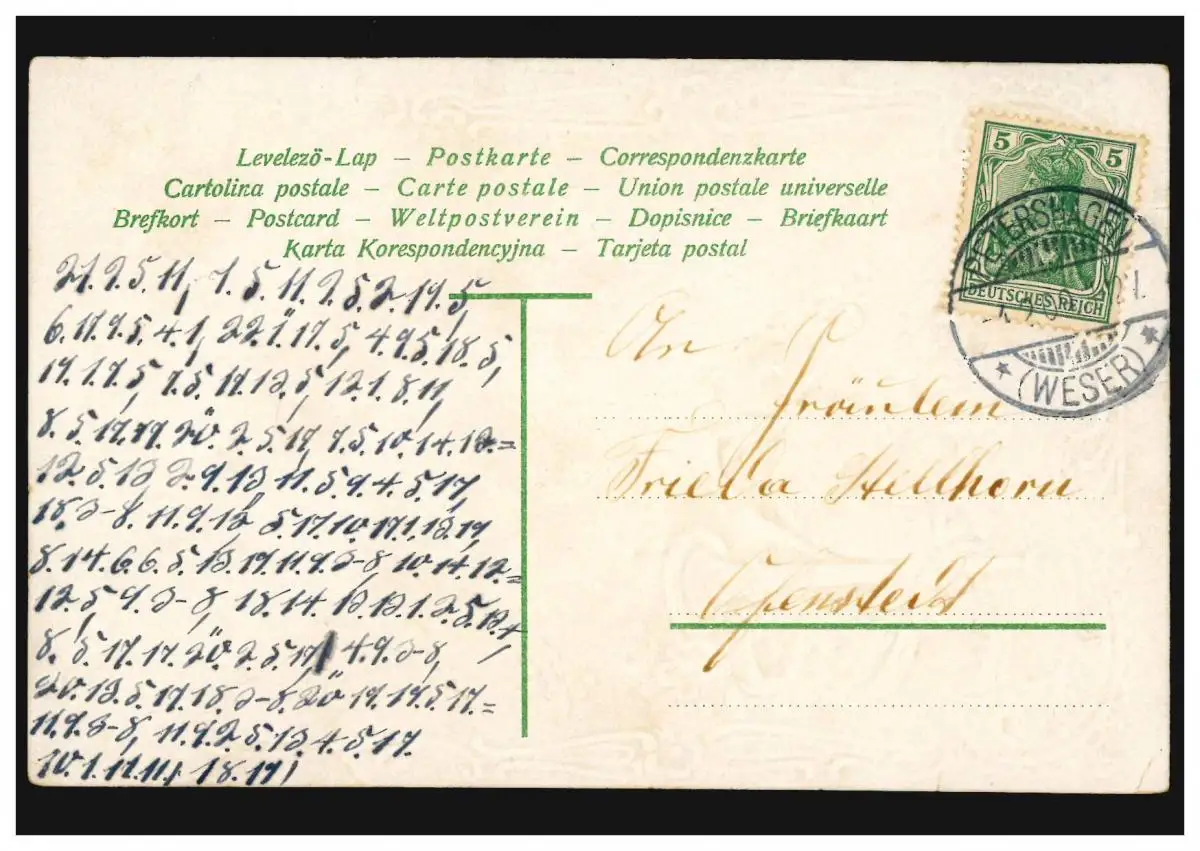 Levelező-Lap – Postkarte – Correspondenzkarte
Cartolina postale – Carte postale – Union postale universelle
Brefkort – Postcard – Weltpostverein – Dopisnice – Briefkaart
Karta Korespondencyjna – Tarjeta postal
21.9.5.11, 7.5.11.9.5.2.19.5,
6.17.9.5.4.1, 22.ï.17.5, 4.9.5.18.5,
19.1.7.5, 7.5.17.13.5, 12.1.8.11,
8.5.17.17.20̈.2.5.17, 7.5.10.14.12.=
12.5.13 2.9.13, 11.5.9.4.5.17,
18.3-8.11.9.12 5.17.10.17.1.13.19,
8.14.6.6.5.13.19.11.9.3-8 10.14.12.=
12.5, 9.3-8, 18.14.13.13.1.2.5.13.4,
8.5.17.17.20̈.2.5.17, 4.9.3-8,
20.13.5.17.18.3-8.20̈ 19.19.5.17.=
11.9.3-8, 11.9.2.5.13.4.5.17.
10.1.17.11, 18.17,
5 5
DEUTSCHES REICH
PETERSHAGEN
(WESER)
An
Fräulein
Frieda Hellhorn